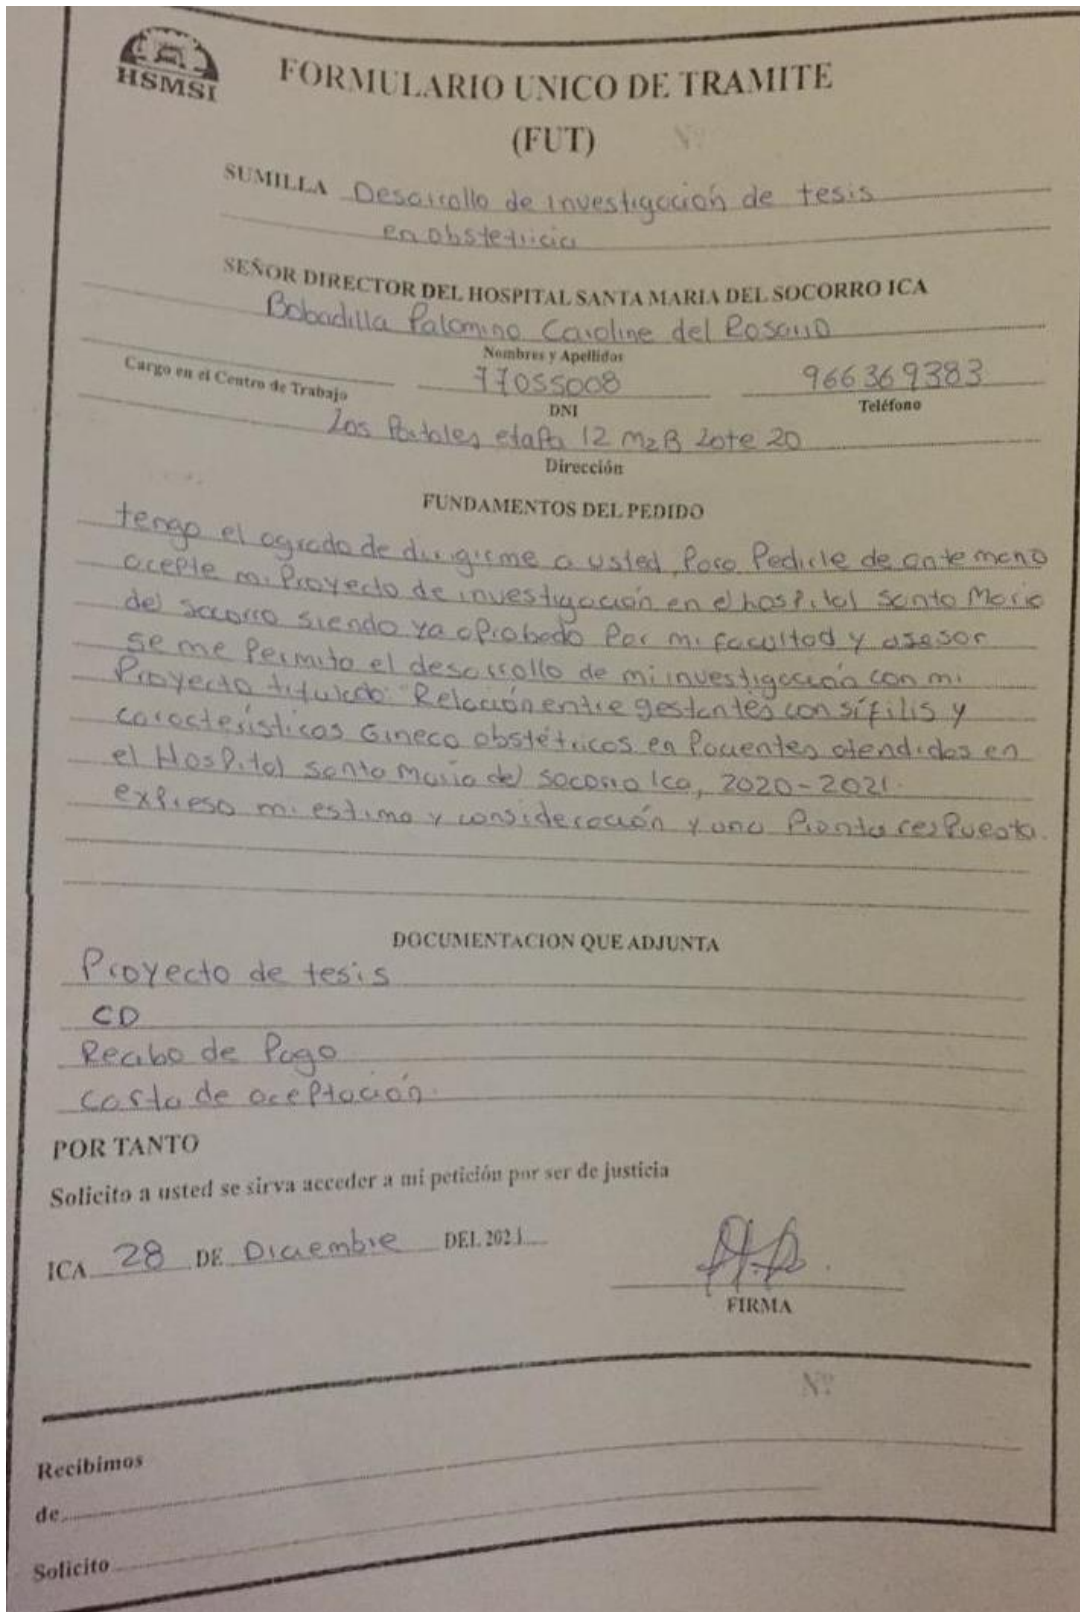 HSMSI
FORMULARIO UNICO DE TRAMITE
(FUT) Nº
SUMILLA Desarrollo de investigación de tesis
en obstetricia
SEÑOR DIRECTOR DEL HOSPITAL SANTA MARIA DEL SOCORRO ICA
Bobadilla Palomino Caroline del Rosario
Nombres y Apellidos
77055008 966369383
Cargo en el Centro de Trabajo DNI Teléfono
Los Portales etapa 12 MzB Lote 20
Dirección
FUNDAMENTOS DEL PEDIDO
tengo el agrado de dirigirme a usted, Para Pedirle de ante mano
acepte mi Proyecto de investigación en el hospital Santa Maria
del socorro siendo ya aprobado Por mi facultad y asesor
se me Permita el desarrollo de mi investigación con mi
Proyecto titulado: Relación entre gestantes con sífilis y
características Gineco obstétricos en Pacientes atendidas en
el Hospital santa Maria del socorro Ica, 2020-2021.
expreso mi estima y consideración y una Pronta respuesta.
DOCUMENTACION QUE ADJUNTA
Proyecto de tesis
CD
Recibo de Pago
Carta de aceptación.
POR TANTO
Solicito a usted se sirva acceder a mi petición por ser de justicia
ICA 28 DE Diciembre DEL 2021
FIRMA
Nº
Recibimos
de
Solicito